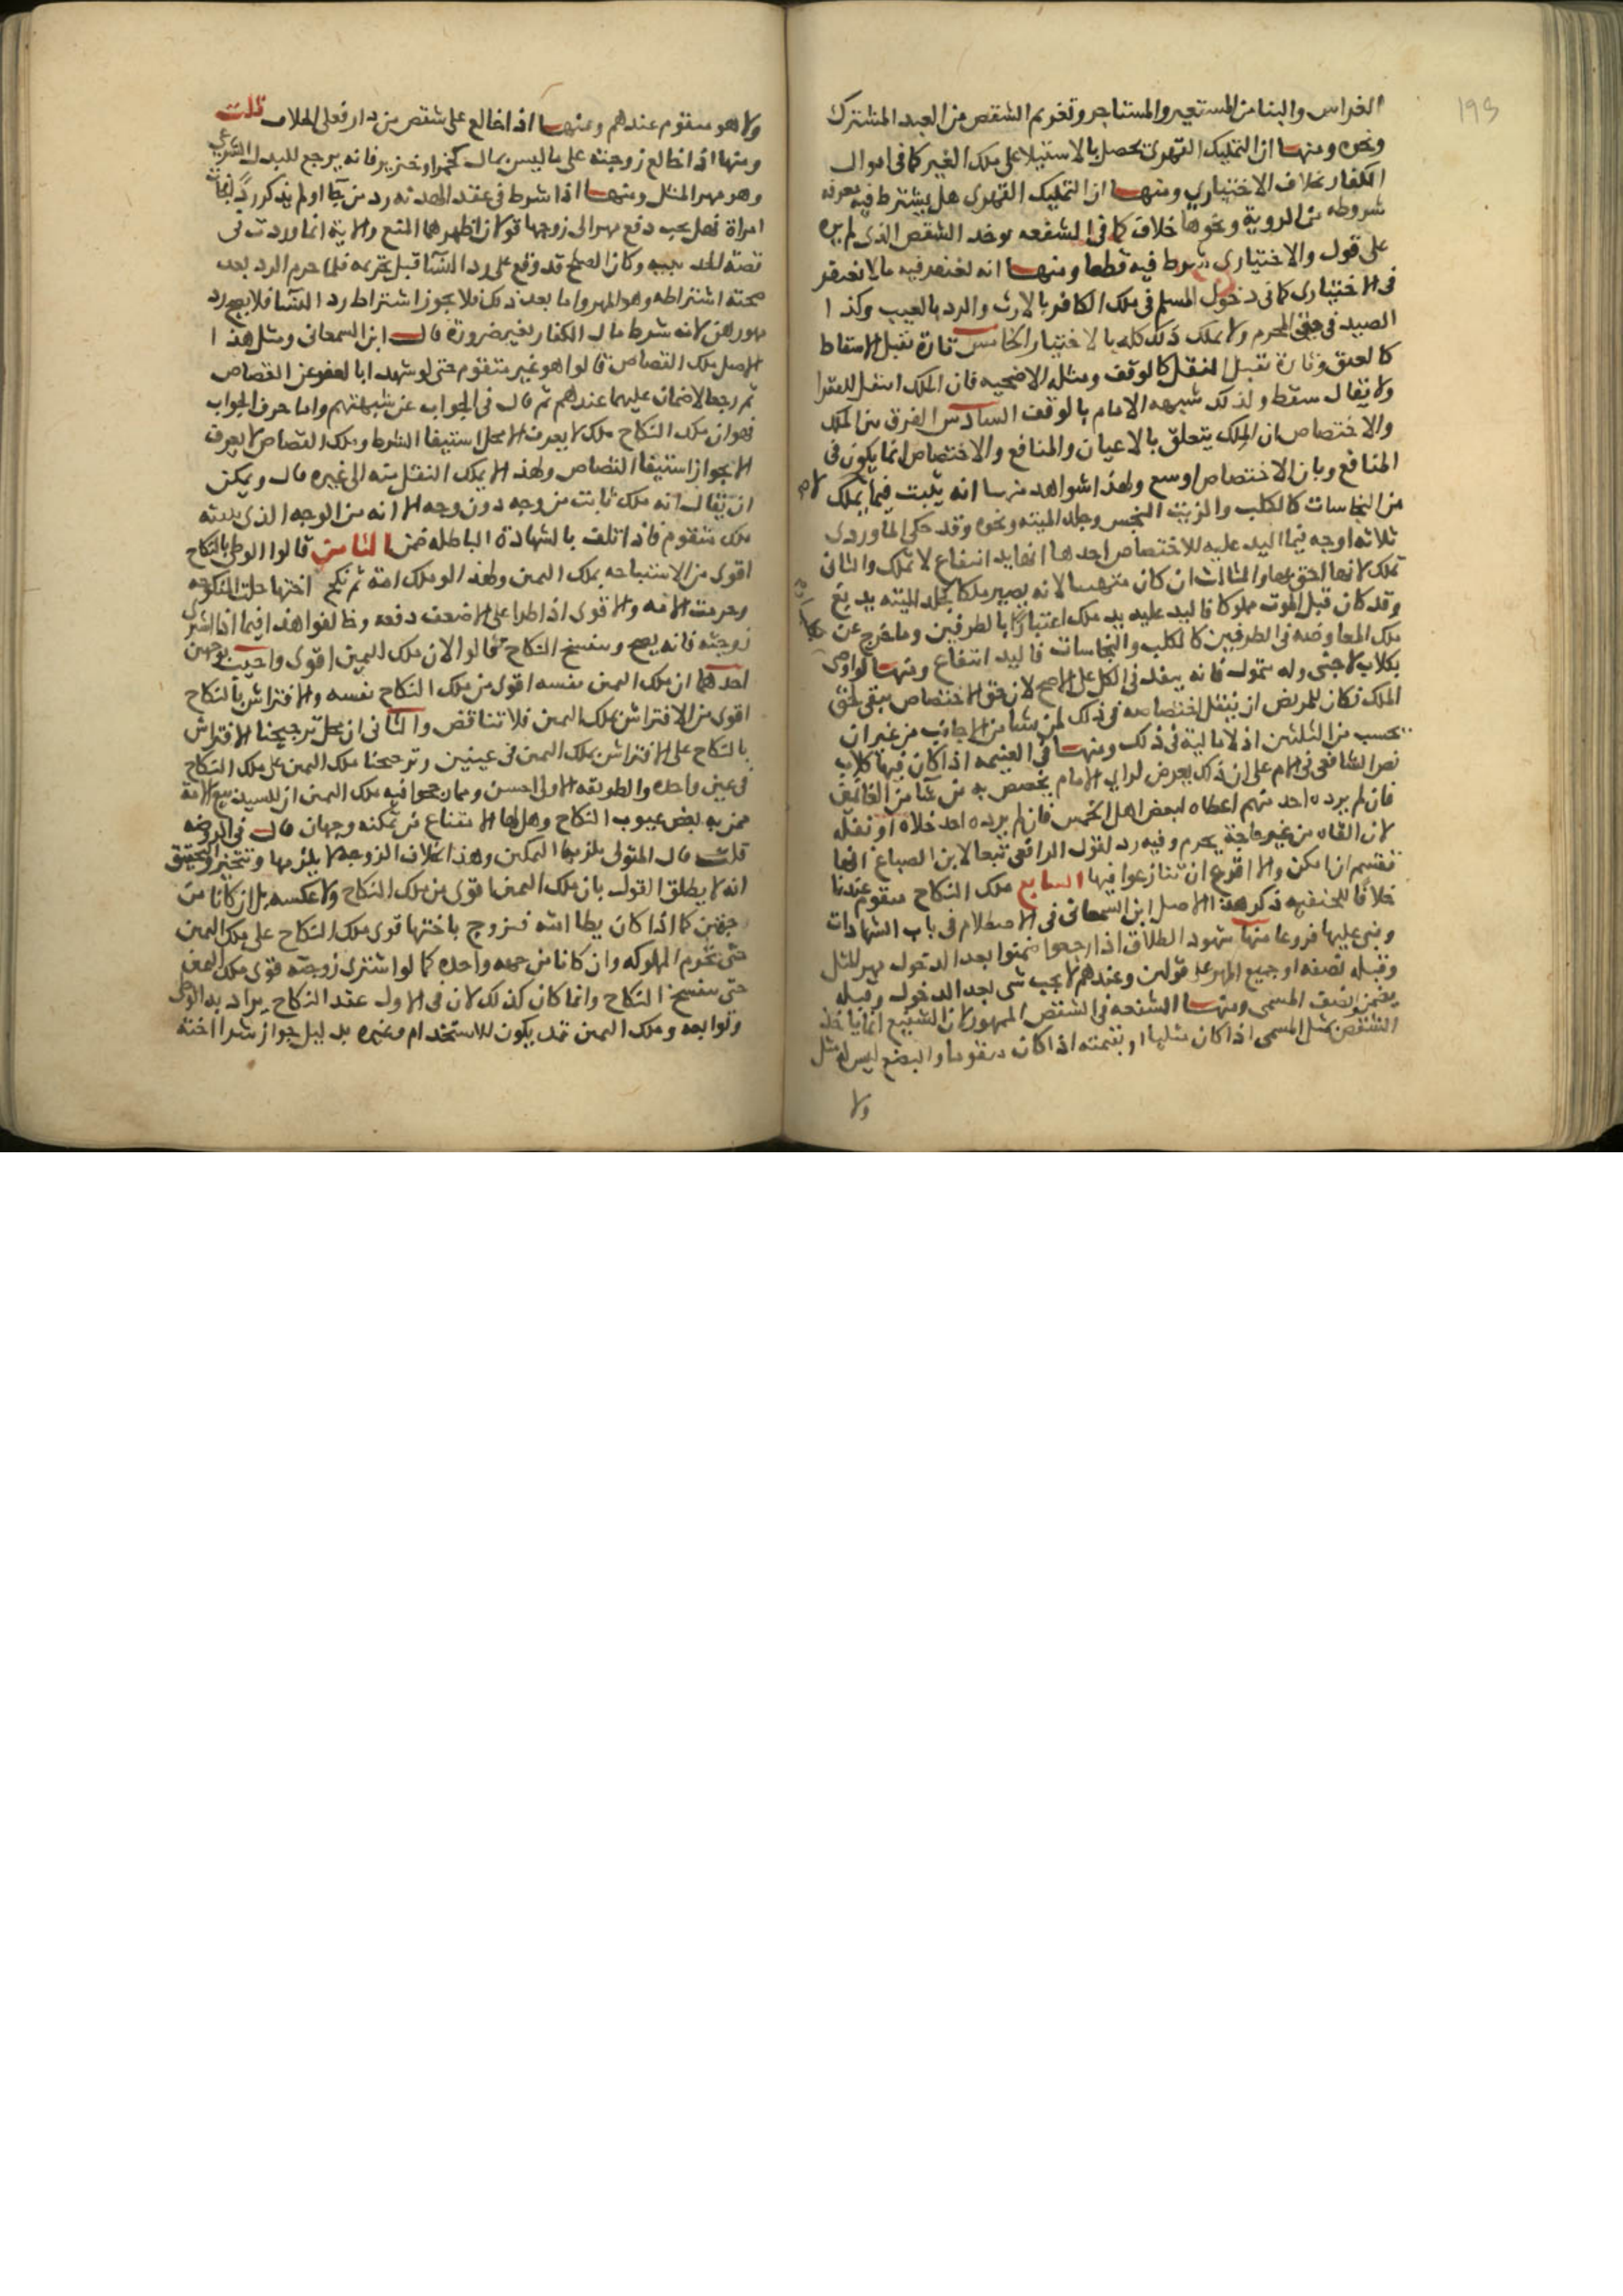 193
الغراس والبنا من المستعير والمستاجر وتقويم الشقص من العبد المشترك
ونحوه ومنها ان التمليك القهرى يحصل بالاستيلا على ملك الغير كما فى اموال
الكفار بخلاف الاختياري ومنها ان التمليك القهرى هل يشترط فيه معرفة
شروطه من الروية ونحوها خلاف كما فى الشفعه يوخذ الشقص الذى لم يره
على قول والاختيارى يشترط فيه قطعا ومنها انه يغتفر فيه ما لا يغتفر
فى الاختيارى كما فى دخول المسلم فى ملك الكافر بالارث والرد بالعيب وكذا
الصيد فى حق المحرم ولا يملك ذلك كله بالاختيار الخامس تارة يقبل الاسقاط
كالعتق وتارة يقبل النقل كالوقف ومثله الاضحيه فان الملك انتقل للفقرا
ولا يقال سقط ولذلك شبهه الامام بالوقف السادس الفرق بين الملك
والاختصاص ان الملك يتعلق بالاعيان والمنافع والاختصاص انما يكون فى
المنافع وبان الاختصاص اوسع ولهذا شواهد منها انه يثبت فيما لا يملك
من النجاسات كالكلب والزيت النجس وجلد الميته ونحوه وقد حكى الماوردى
ثلاثه اوجه فيما اليد عليه للاختصاص احدها انها يد انتفاع لا تملك والثانى
تملك لانها احق بها والثالث ان كان منها لانه يصير ملكا كجلد الميته يدبغ
وقد كان قبل الموت مملوكا فاليد عليه يد ملك اعتبارا بالطرفين وما خرج عن
ملك المعاوضه فى الطرفين كالكلب والنجاسات فاليد انتفاع ومنها لو اوصى
بكلاب لاجنبى وله متمول فانه ينفذ فى الكل على الاصح لان حق الاختصاص يبقى لحق
الملك فكان للمريض ان ينقل اختصاصه فى ذلك لمن شا من الاجانب من غير ان
يحسب من الثلثين اذ لا مالية فى ذلك ومنها فى الغنيمه اذا كان فيها كلاب
نص الشافعى فى الام على ان ذلك يعرض لراي الامام يخصص به من شا من الغانمين
فان لم يرده احد منهم اعطاه لبعض اهل الخمس فان لم يرده احد خلاه او نقله
لان اقتناه من غير حاجة يحرم وفيه رد لقول الرافعى تبعا لابن الصباغ انها
تقسم ان امكن والا اقرع ان تنازعوا فيها السابع ملك النكاح متقوم عندنا
خلافا للحنفيه ذكر هذا الاصل ابن السمعانى فى الاصطلام فى باب الشهادات
وبنى عليها فروعا منها شهود الطلاق اذا رجعوا ضمنوا بعد الدخول مهر المثل
وقبله نصفه او جميع المهر على قولين وعندهم لا يجب شى بعد الدخول وقبله
يضمن نصف المسمى ومنها الشفعه فى الشقص الممهور لان الشفيع انما ياخذ
الشقص بمثل المسمى اذا كان مثليا او بقيمته اذا كان متقوما والبضع ليس له مثل
ولا
ولا هو متقوم عندهم ومنها اذا خالع على شقص من دار فعلى الخلاف قلت
ومنها اذا خالع زوجته على ما ليس بمال كخمر او خنزير فانه يرجع للبدل الشرعي
وهو مهر المثل ومنها اذا شرط فى عقد الهدنه رد من جا او لم يذكر رد فجات
امراة فهل يجب دفع مهر الى زوجها قولان اظهرهما المنع والاية انما وردت فى
قصة الحديبيه وكان الصلح قد وقع على رد النسا قبل تحريمه فلما حرم الرد بعد
صحته اشتراطه وهو المهر واما بعد ذلك فلا يجوز اشتراط رد النسا فلا يجب رد
مهورهن لانه شرط مال الكفار بغير ضرورة قال ابن السمعانى ومثل هذا
الاصل ملك القصاص قالوا هو غير متقوم حتى لو شهد ابا لعفو عن القصاص
ثم رجعا لا ضمان عليهما عندهم ثم قال فى الجواب عن شبهتهم واما حرف الجواب
فهو ان ملك النكاح ملك لا يعرف الا محل استيفا الشرط وملك القصاص لا يعرف
الا بجواز استيفا القصاص ولهذا لا يملك النقل منه الى غيره قال ويمكن
ان يقال انه ملك ثابت من وجه دون وجه الا انه من الوجه الذى يثبته
ملك متقوم فاذا اتلف بالشهادة الباطله ضمن الثامن قالوا الوطى بالنكاح
اقوى من الاستباحه بملك اليمين ولهذا لو ملك امة ثم نكح اختها حلت المنكوحه
وحرمت الامه والاقوى اذا طرا على الاضعف دفعه وخالفوا هذا فيما اذا اشترى
زوجته فانه يصح وينفسخ النكاح فقالوا لان ملك اليمين اقوى واجيب بوجهين
احدهما ان ملك اليمين نفسه اقوى من ملك النكاح نفسه والافتراش بالنكاح
اقوى من الافتراش بملك اليمين فلا تناقض والثانى ان محل ترجيحنا الافتراش
بالنكاح على الافتراش بملك اليمين فى عينين وترجيحنا ملك اليمين على ملك النكاح
فى عين واحده والطريقه الاولى احسن ومما رجحوا فيه ملك اليمين ان للسيد بيع الامة
ممن به بعض عيوب النكاح وهل لها الامتناع من تمكينه وجهان قال فى الروضه
قلت قال المتولى يلزمها التمكين وهذا بخلاف الزوجه لا يلزمها وتتخير والتحقيق
انه لا يطلق القول بان ملك اليمين اقوى من ملك النكاح ولا عكسه بل ان كانا من
جهتين كما اذا كان يطا امته فتزوج باختها قوى ملك النكاح على ملك اليمين
حتى تحرم المملوكه وان كانا من جهه واحده كما لو اشترى زوجته قوى ملك اليمين
حتى ينفسخ النكاح وانما كان كذلك لان فى الاول عقد النكاح يراد به الوطى
وتوابعه وملك اليمين قد يكون للاستخدام وغيره بدليل جواز شرا اخته